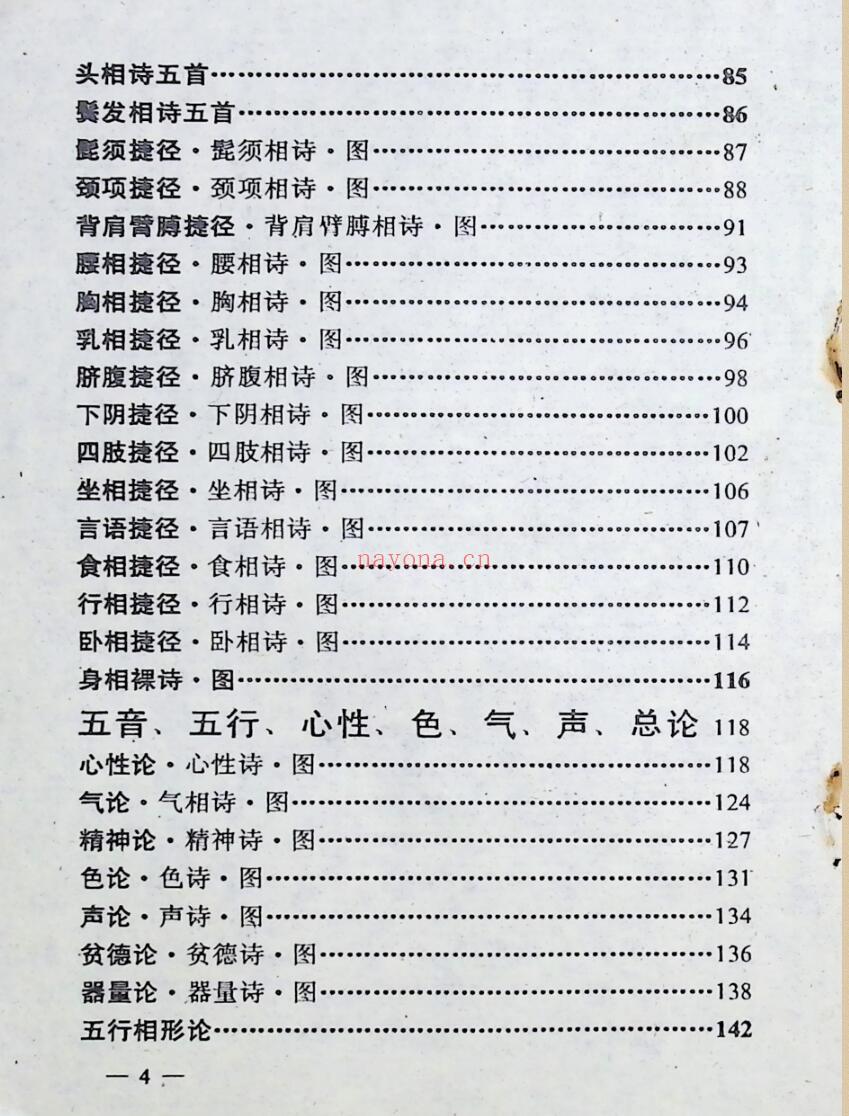 头相诗五首……………………………………85
鬓发相诗五首…………………………………86
髭须捷径·髭须相诗·图……………………87
颈项捷径·颈项相诗·图……………………88
背肩臂膊捷径·背肩臂膊相诗·图…………91
腰相捷径·腰相诗·图………………………93
胸相捷径·胸相诗·图………………………94
乳相捷径·乳相诗·图………………………96
脐腹捷径·脐腹相诗·图……………………98
下阴捷径·下阴相诗·图……………………100
四肢捷径·四肢相诗·图……………………102
坐相捷径·坐相诗·图………………………106
言语捷径·言语相诗·图……………………107
nayona.cn
食相捷径·食相诗·图………………………110
行相捷径·行相诗·图………………………112
卧相捷径·卧相诗·图………………………114
身相裸诗·图…………………………………116
五音、五行、心性、色、气、声、总论 118
心性论·心性诗·图…………………………118
气论·气相诗·图……………………………124
精神论·精神诗·图…………………………127
色论·色诗·图………………………………131
声论·声诗·图………………………………134
贫德论·贫德诗·图…………………………136
器量论·器量诗·图…………………………138
五行相形论……………………………………142
— 4 —